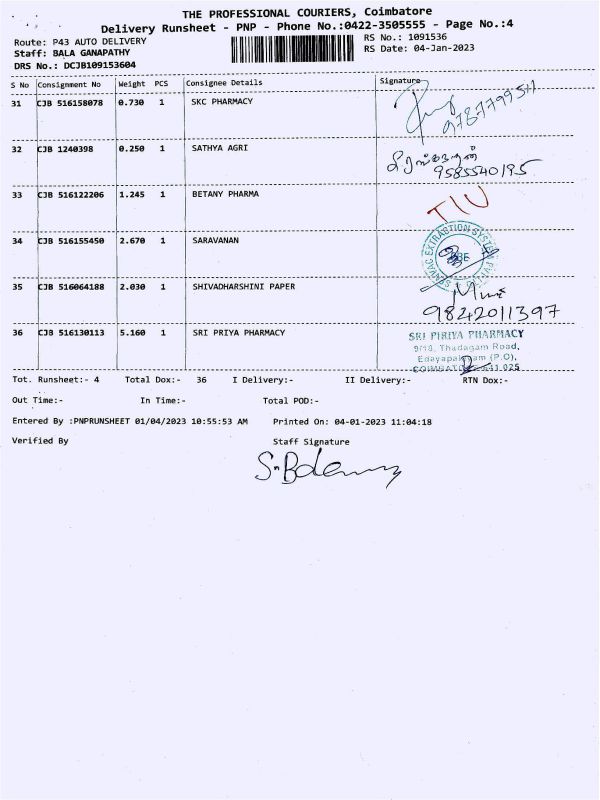 THE PROFESSIONAL COURIERS, Coimbatore
Delivery Runsheet - PNP - Phone No.:0422-3505555 - Page No.:4
Route: P43 AUTO DELIVERY
RS No.: 1091536
Staff: BALA GANAPATHY
RS Date: 04-Jan-2023
DRS No.: DCJB109153604
S No Consignment No Weight PCS Consignee Details Signature
31 CJB 516158078 0.730 1 SKC PHARMACY
32 CJB 1240398 0.250 1 SATHYA AGRI
9585540195
33 CJB 516122206 1.245 1 BETANY PHARMA
34 CJB 516155450 2.670 1 SARAVANAN
35 CJB 516064188 2.030 1 SHIVADHARSHINI PAPER
9842011397
36 CJB 516130113 5.160 1 SRI PRIYA PHARMACY
SRI PIRIYA PHARMACY
9/18, Thadagam Road,
(P.O),
641 025
Tot. Runsheet:- 4 Total Dox:- 36 I Delivery:- II Delivery:- RTN Dox:-
Out Time:- In Time:- Total POD:-
Entered By :PNPRUNSHEET 01/04/2023 10:55:53 AM Printed On: 04-01-2023 11:04:18
Verified By Staff Signature